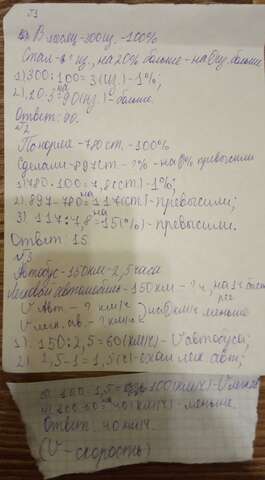 №1
В месяц-300ц.-100%
Стал-? ц., на 20% больше-на ? ц. больше
1) 300:100=3(ц.)-1%;
на
2) 30.3=90(ц.)-больше.
Ответ: 90.
№2
По норме-780 ст.-100%
Сделали-897 ст.-?%-на ?% превысили
1) 780:100=7,8(ст.)-1%;
на
2) 897-780=117(ст)-превысили;
на
3) 117:7,8=15(%)-превысили.
Ответ: 15
№3
Автобус-150км-2,5часа
Легковой автомобиль-150км-? ч, на 1ч
V авт-? км/ч
V легк. ав.-? км/ч
на ? км/ч меньше
1) 150:2,5=60(км/ч)-V автобуса;
2) 2,5-1=1,5(ч)-ехал легк авт;
3) 150:1,5=100(км/ч)-V легк
на
4) 100-60=40(км/ч)-меньше.
Ответ: 40 км/ч.
(V-скорость)